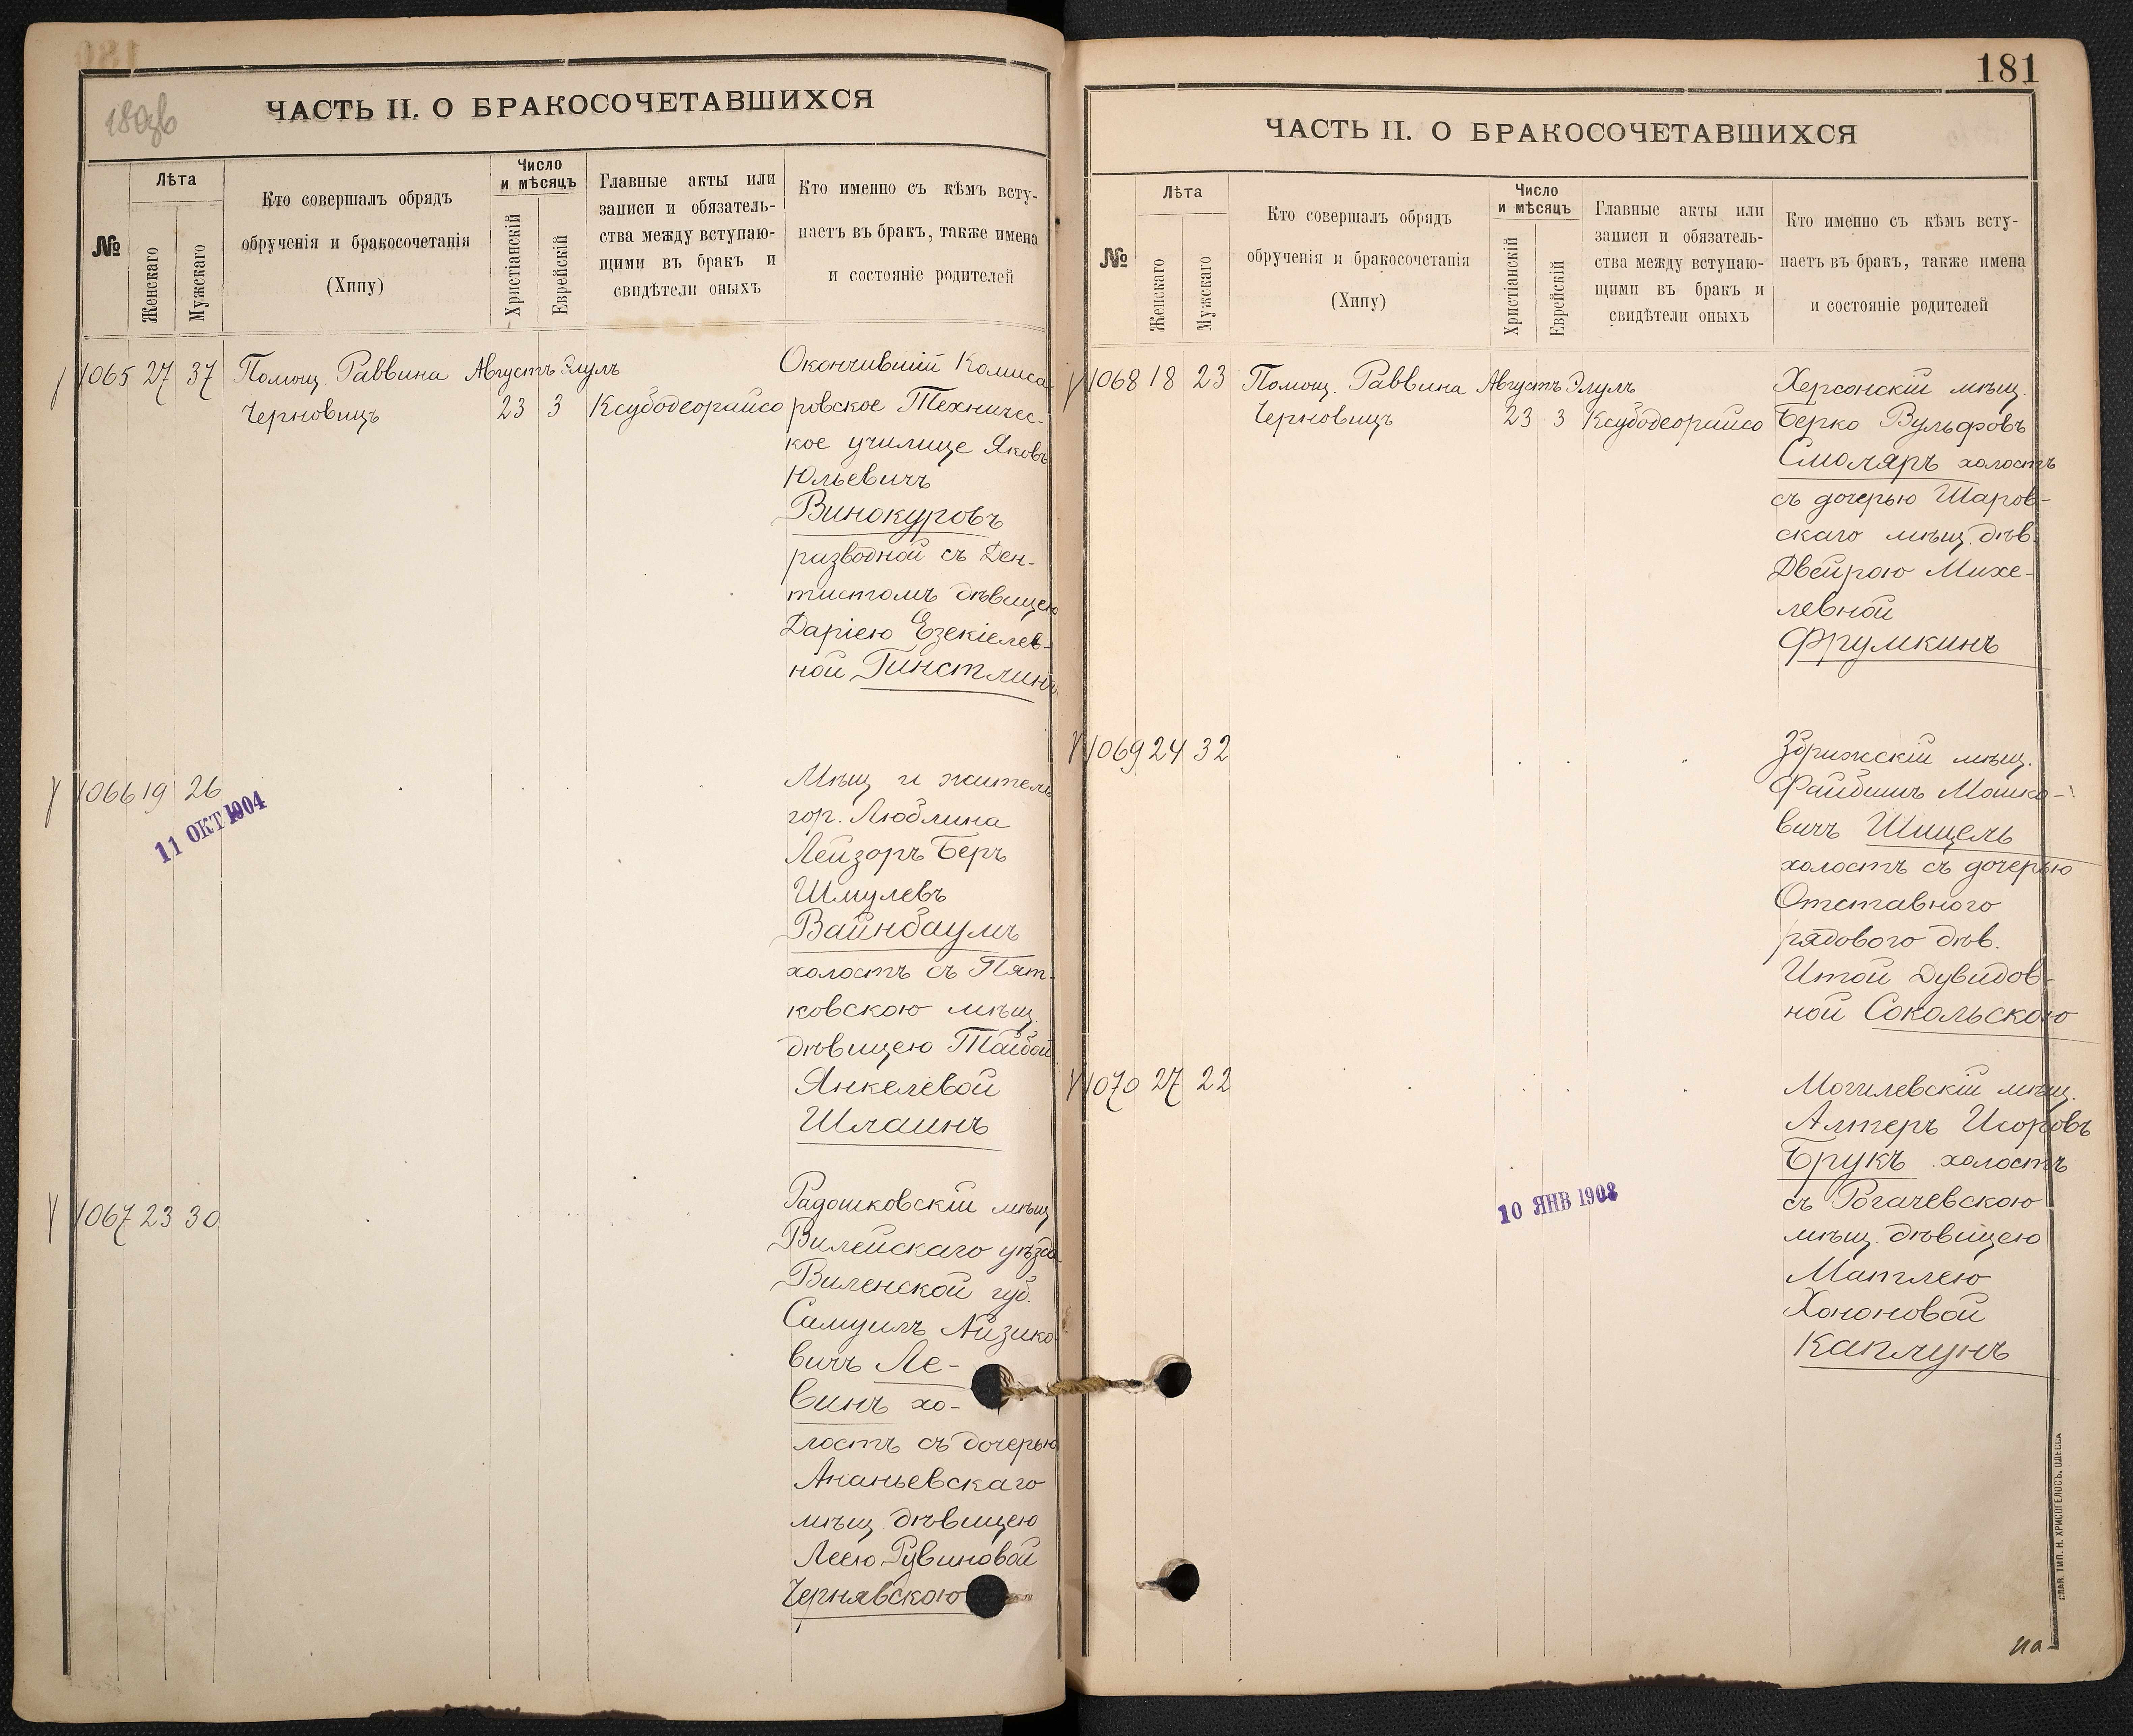 180 об
ЧАСТЬ II. О БРАКОСОЧЕТАВШИХСЯ
№
Лѣта
Женскаго
Мужскаго
Кто совершалъ обрядъ
обрученія и бракосочетанія
(Хипу)
Число
и мѣсяцъ
Христіанскій
Еврейскій
Главные акты или
записи и обязатель-
ства между вступаю-
щими въ бракъ и
свидѣтели оныхъ
Кто именно съ кѣмъ всту-
паетъ въ бракъ, также имена
и состояніе родителей
1065 27 37 Помощ. Раввина Августъ Элулъ
Черновицъ 23 3 Ксубодеорайсо
Окончившій Комиса-
ровское Техничес-
кое училище Яковъ
Юльевичъ
Винокуровъ
разводной съ Ден-
тистомъ дѣвицею
Даріею Езекіелев-
ной Гинстлинг
1066 19 26
11 ОКТ 1904
Мѣщ и житель
гор. Люблина
Лейзоръ Беръ
Шмулевъ
Вайнбаумъ
холостъ съ Пят-
ковскою мѣщ.
дѣвицею Тайбой
Янкелевой
Шлаинъ
1067 23 30
Радошковскій мѣщ
Вилейскаго уѣзда
Виленской губ.
Самуилъ Айзико-
вичъ Ле-
винъ хо-
лостъ съ дочерью
Ананьевскаго
мѣщ. дѣвицею
Леею Рувиновой
Чернявскою
181
ЧАСТЬ II. О БРАКОСОЧЕТАВШИХСЯ
№
Лѣта
Женскаго
Мужскаго
Кто совершалъ обрядъ
обрученія и бракосочетанія
(Хипу)
Число
и мѣсяцъ
Христіанскій
Еврейскій
Главные акты или
записи и обязатель-
ства между вступаю-
щими въ бракъ и
свидѣтели оныхъ
Кто именно съ кѣмъ всту-
паетъ въ бракъ, также имена
и состояніе родителей
1068 18 23 Помощ. Раввина Августъ Элулъ
Черновицъ 23 3 Ксубодеорайсо
Херсонскій мѣщ.
Берко Вульфовъ
Смоляръ холостъ
съ дочерью Шаров-
скаго мѣщ. дѣв.
Двейрою Михе-
левной
Фрумкинъ
1069 24 32
Збрижскій мѣщ.
Файбишъ Мошко-
вичъ Шицель
холостъ съ дочерью
Отставного
рядового дѣв.
Итой Дувидов-
ной Сокольскою
1070 27 22
Могилевскій мѣщ.
Алтеръ Исоровъ
Брукъ холостъ
съ Рогачевскою
мѣщ. дѣвицею
Матлею
Хононовой
Каплунъ
10 ЯНВ 1908
СЛАВ. ТИП. Н. ХРИСОГЕЛОСЪ, ОДЕССА